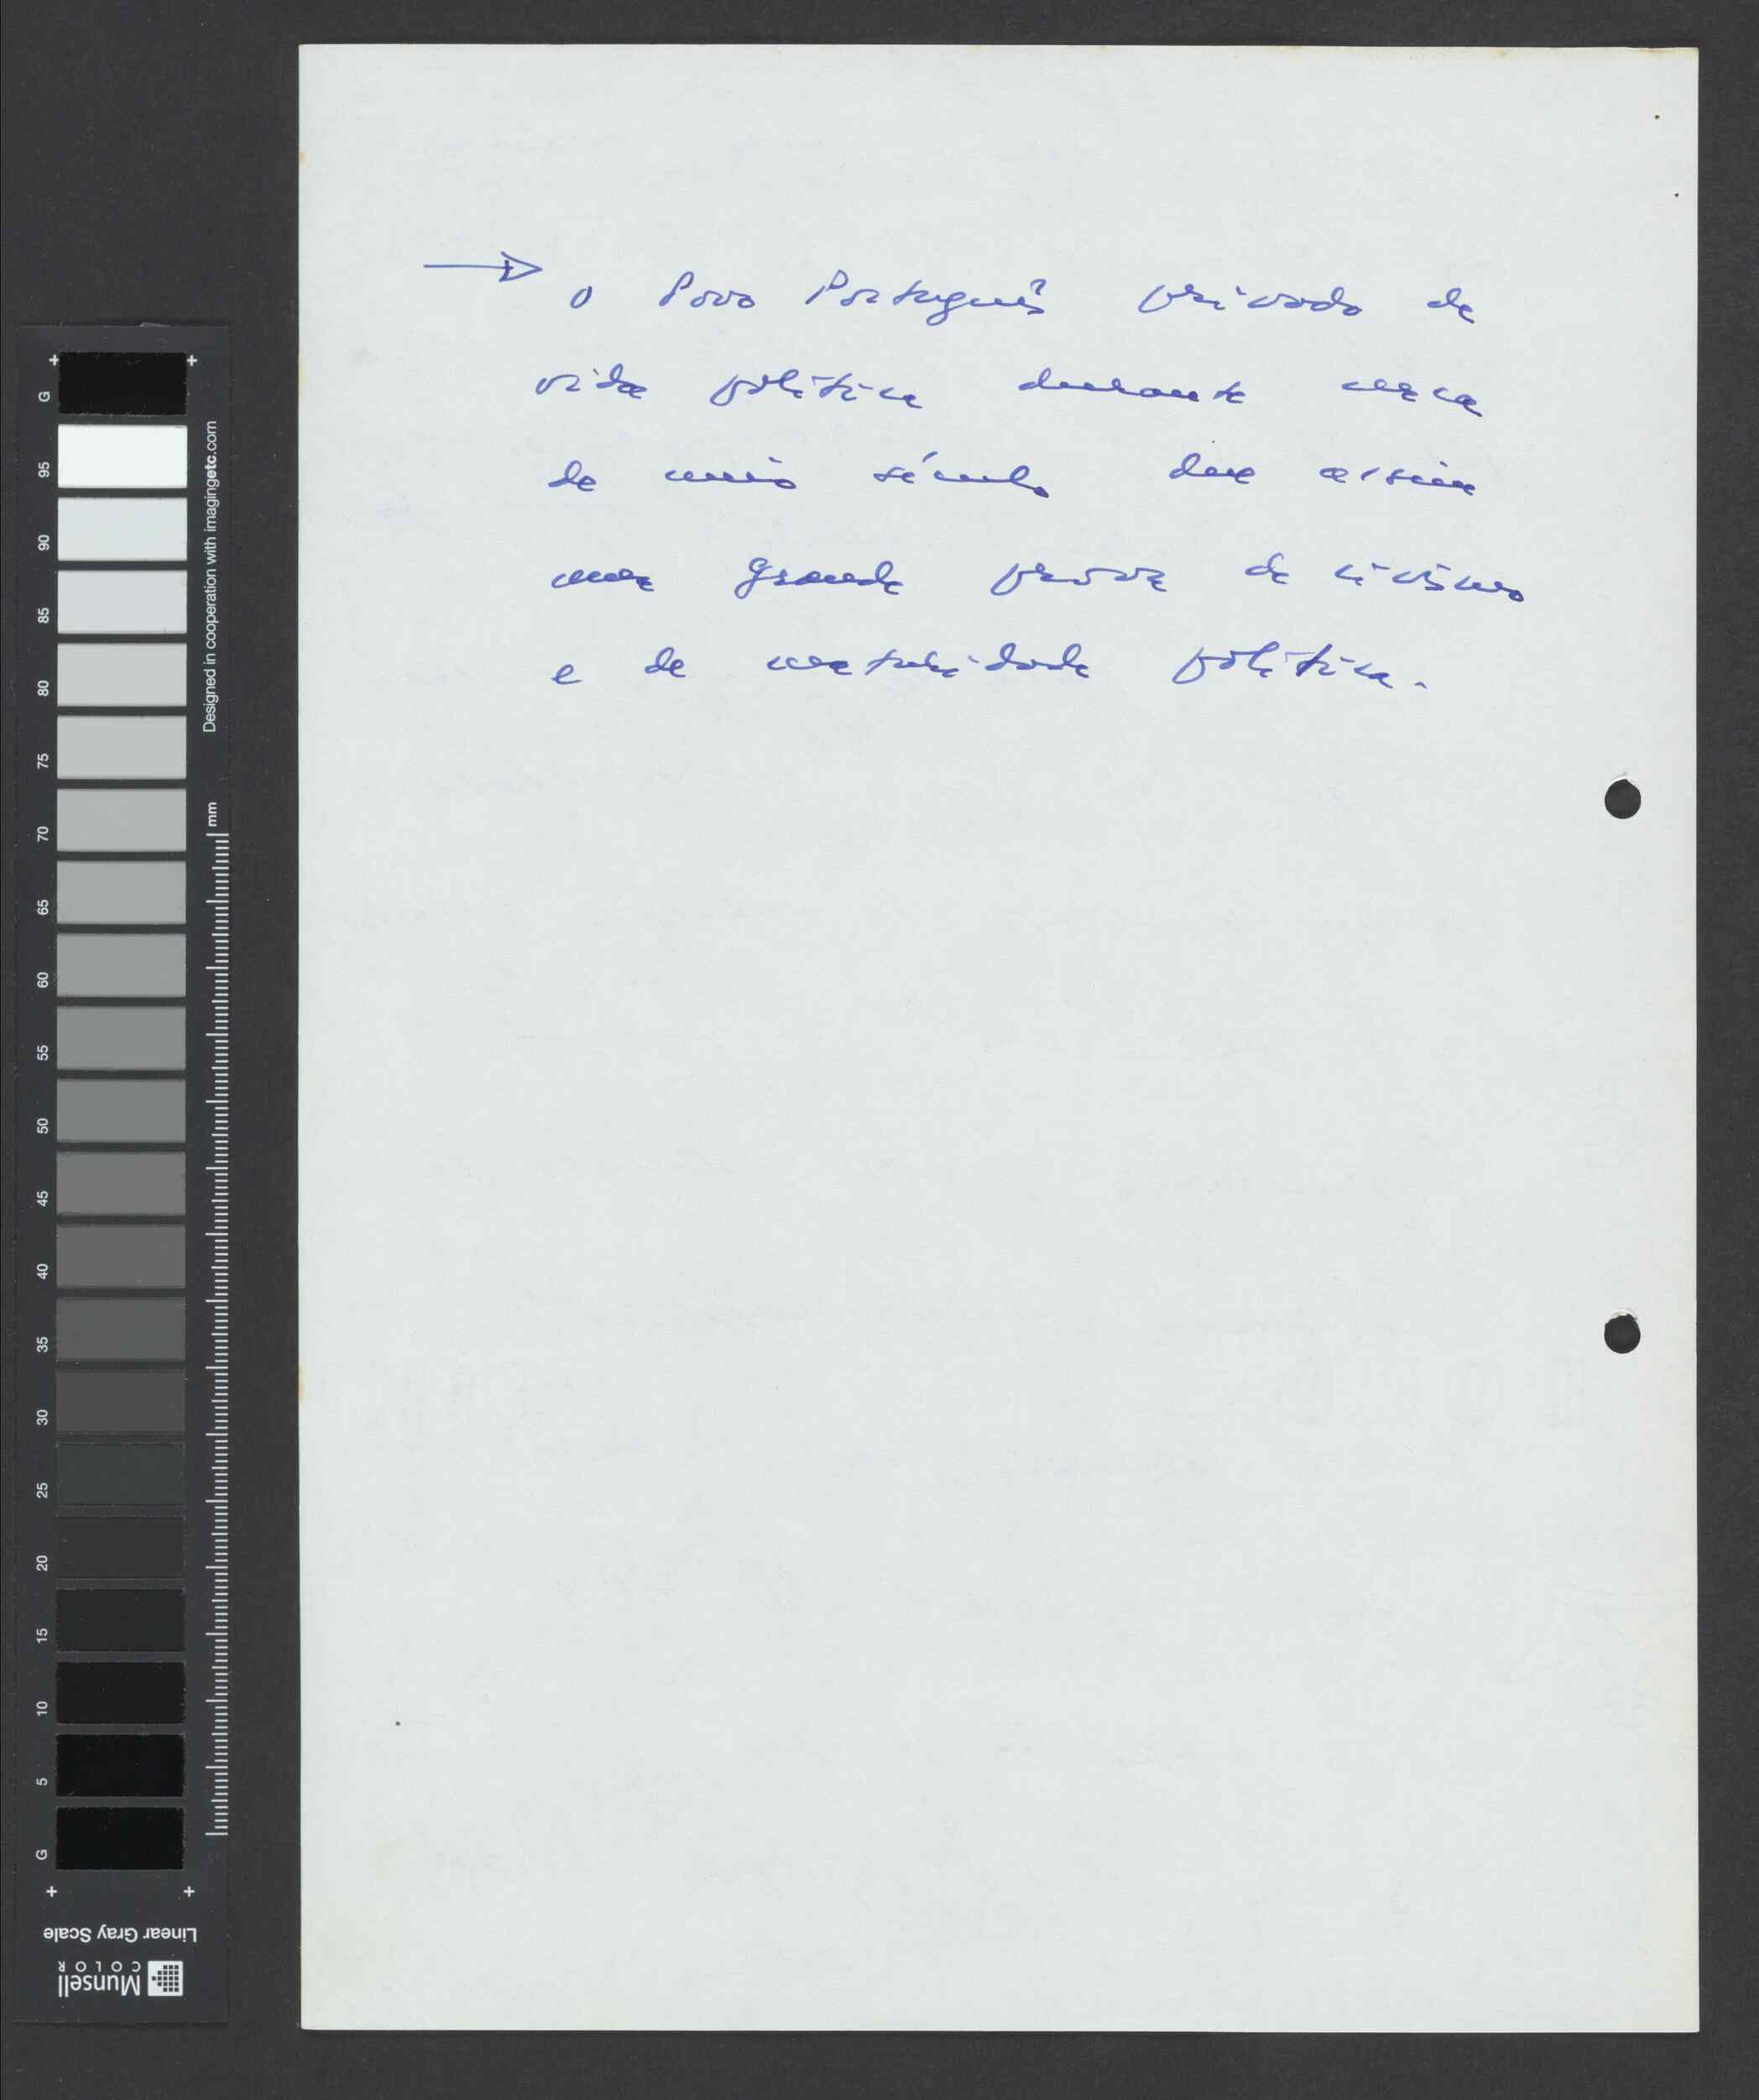 → O Povo Português privado de
vida política durante cerca
de meio século deu assim
uma grande prova de civismo
e de maturidade política.
G 95 90 85 80 75 70 65 60 55 50 45 40 35 30 25 20 15 10 5 G
Designed in cooperation with imagingetc.com
mm
Linear Gray Scale
Munsell
COLOR